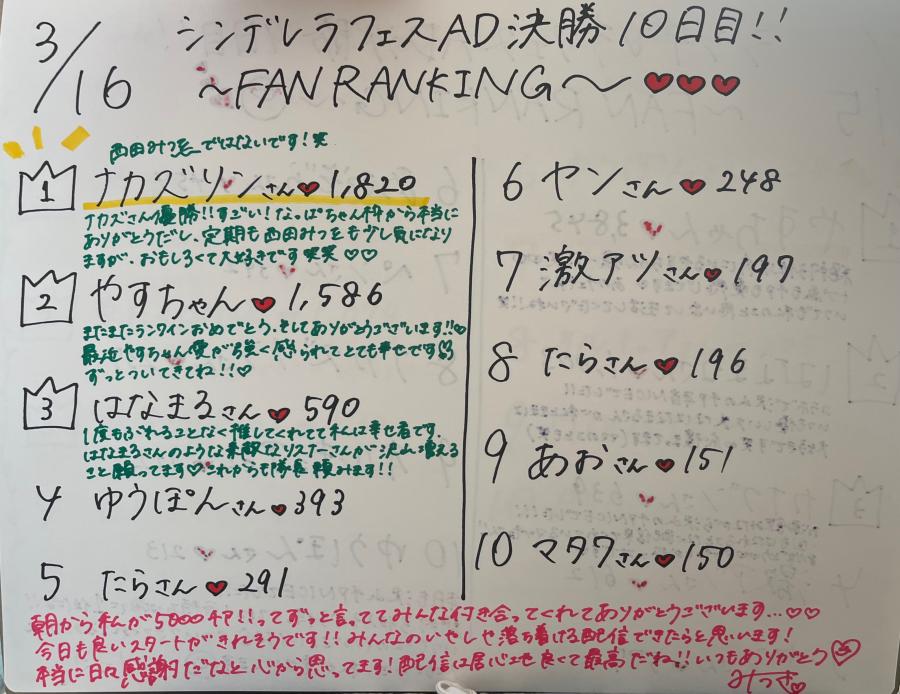 3/16
シンデレラフェスAD決勝10日目!!
～FAN RANKING～♥♥♥
西田みつ毛ではないです!笑
1 ナカズリンさん♥1,820
ナカズさん優勝!!すごい!なっぱちゃん枠から本当に
ありがとうだし、定期も西田みつ毛も少し気になり
ますが、おもしろくて大好きです笑笑♡♡
2 やすちゃん♥1,586
またまたランクインおめでとう、そしてありがとうございます!!♡
最近やすちゃん愛が強く感られてとても幸せです
ずっとついてきてね!!♡
3 はなまるさん♥590
1度もぶれることなく推してくれてて私は幸せ者です。
はなまるさんのような素敵なリスナーさんが沢山増える
こと願ってます♡これからも隊長頼みます!!
4 ゆうぽんさん♥393
5 たらさん♥291
6 ヤンさん♥248
7 激アツさん♥197
8 たらさん♥196
9 あおさん♥151
10 マタワさん♥150
朝から私が5000チア!!ってずっと言っててみんな付き合ってくれてありがとうございます...♡♡
今日も良いスタートがきれそうです!!みんなのいやしや落ち着ける配信できたらと思います!
本当に日々感謝だなと心から思ってます!配信は居心地良くて最高だね!!いつもありがとう
みつき♡